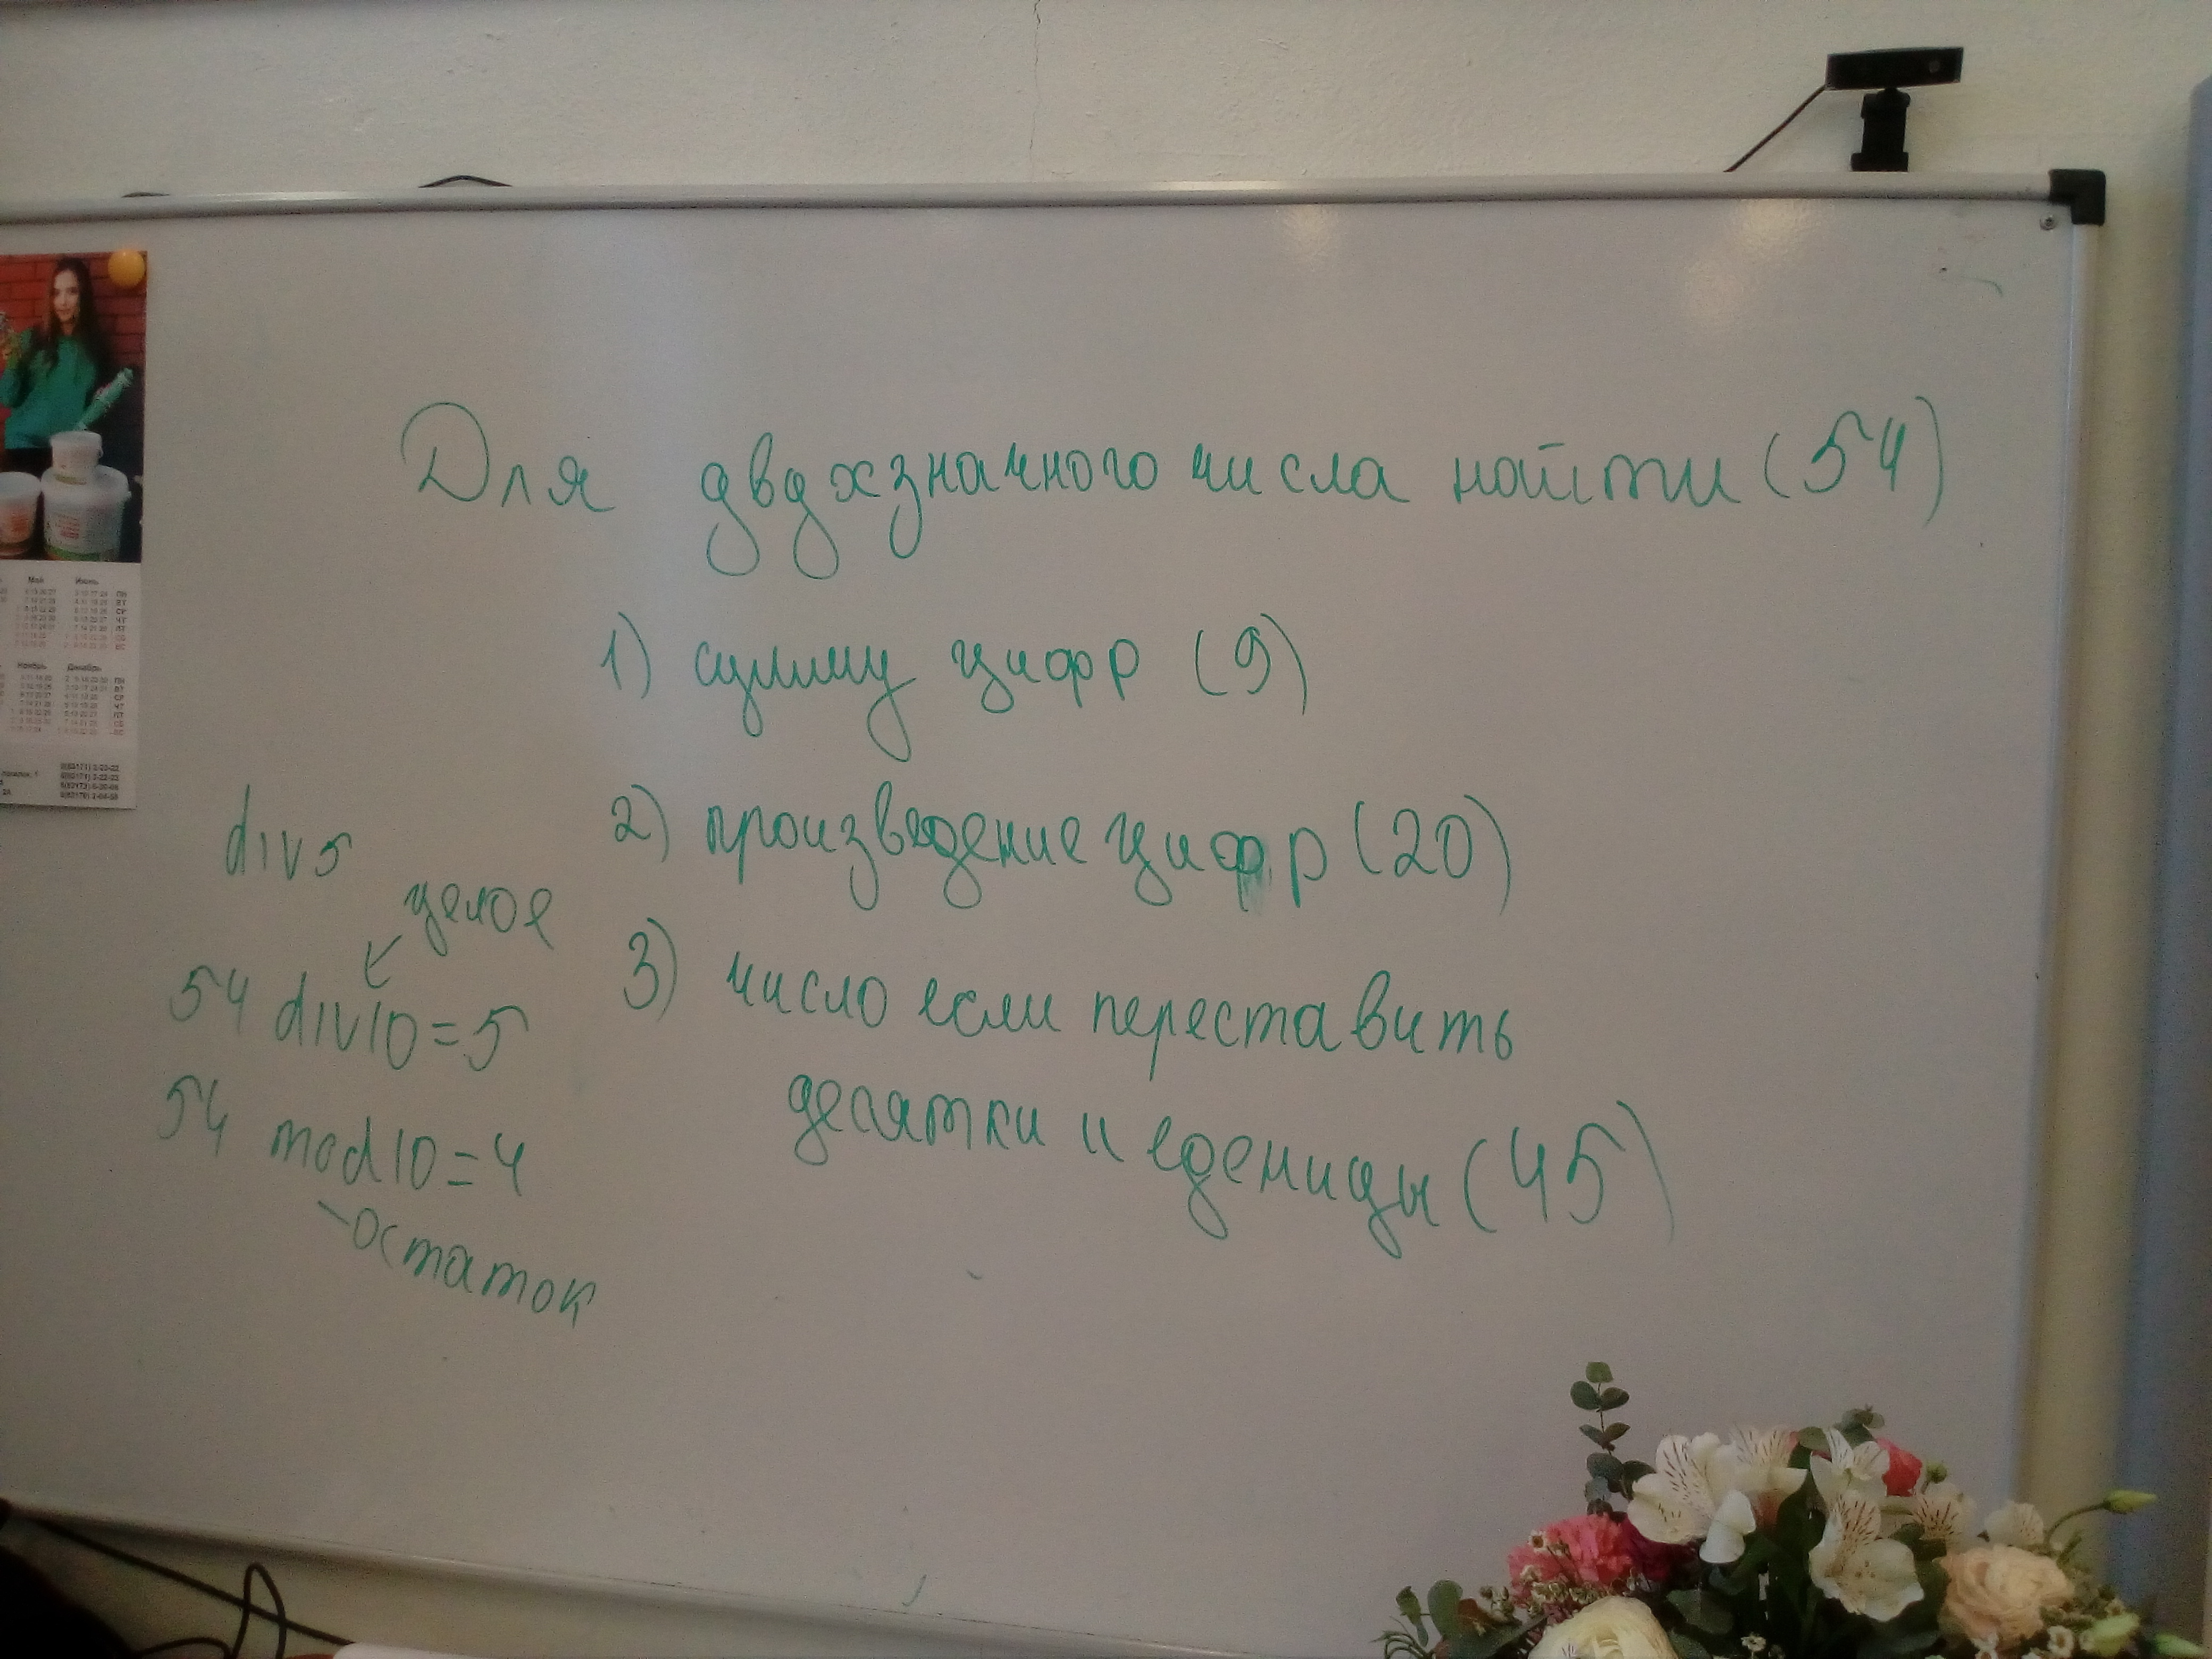 Для двухзначного числа найти (54)
1) сумму цифр (9)
2) произведение цифр (20)
3) число если переставить
десятки и еденицы (45)
div 5
целое
54 div 10 = 5
54 mod 10 = 4
остаток
Май Июнь
Ноябрь Декабрь